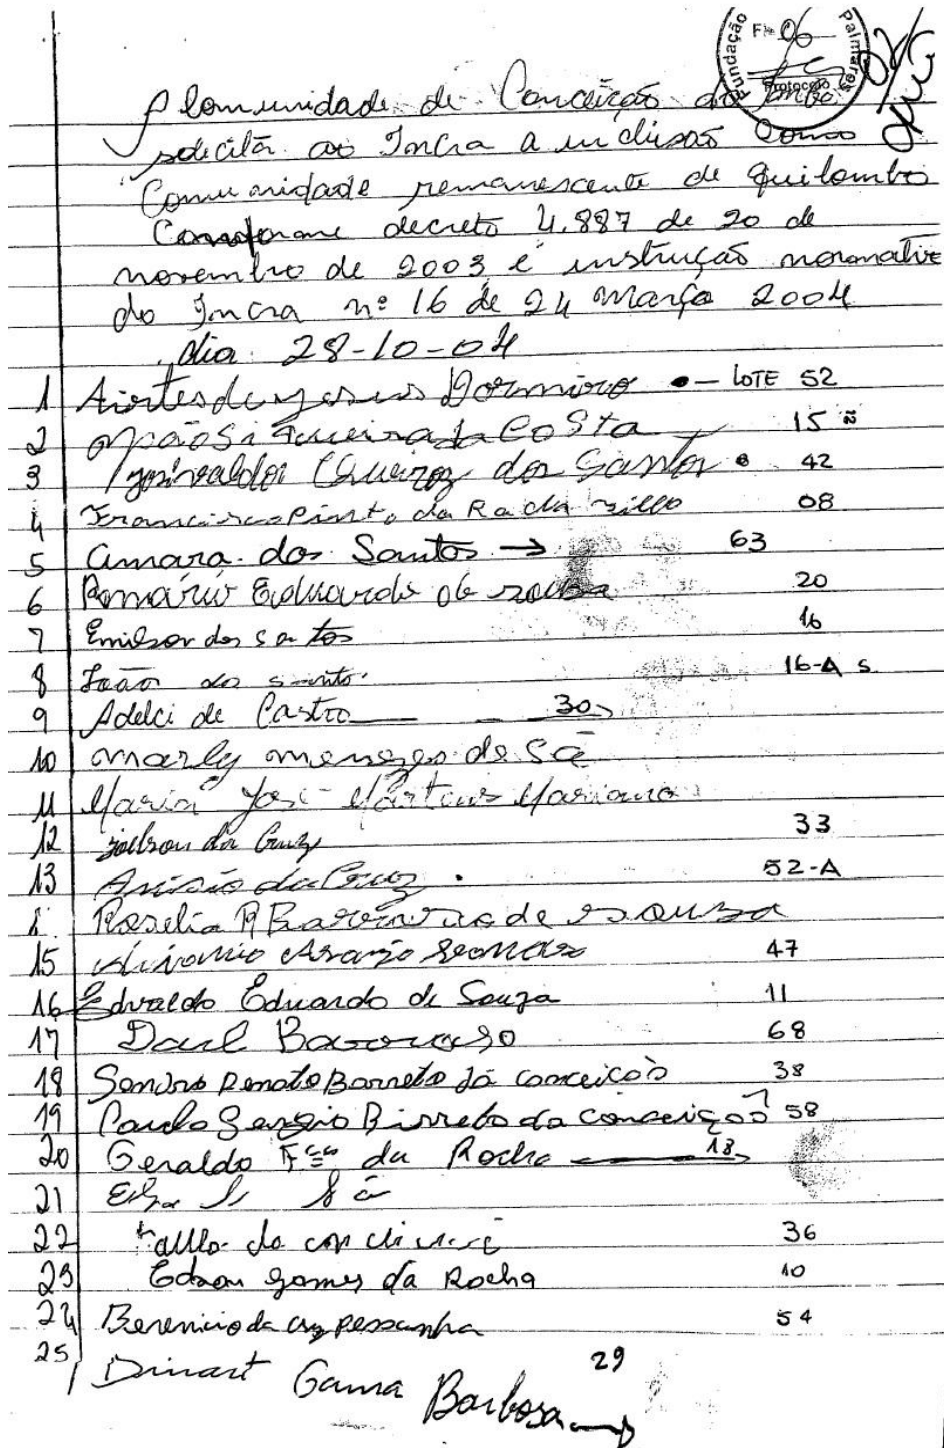 Fundação Palmares
Fl. 06
Protocolo
A Comunidade de Conceição do Imbé
solicita ao Incra a inclusão Como
Comunidade remanescente de Quilombo
Conforme decreto 4.887 de 20 de
novembro de 2003 e instrução normative
do Incra nº 16 de 24 Março 2004
dia 28-10-04
1 de jesus - LOTE 52
2 Siqueira da COSta 15
3 Josivaldo Queiroz dos Santos 42
4 Francisco Pinto da Rocha 08
5 Amara dos Santos → 63
6 Romário Eduardo de souza 20
7 Emilson dos santos 16
8 João dos santos 16-A s
9 Adelci de Castro 30
10 marly menezes de Sá
11 Maria José Martins Mariano
12 Joilson da Cruz 33
13 Anisio da Cruz 52-A
Roselia de souza
15 Antonio Araujo 47
16 Edvaldo Eduardo de Souza 11
17 Barroso 68
18 Sandro Renato Barreto da conceição 38
19 Paulo Sergio Birreto da conceição 58
20 Geraldo Fco da Rocha 18
21 Sá
22 da 36
23 Edson gomes da Rocha 10
24 Berenicio da cruz pessanha 54
25 Dinart Gama Barbosa 29